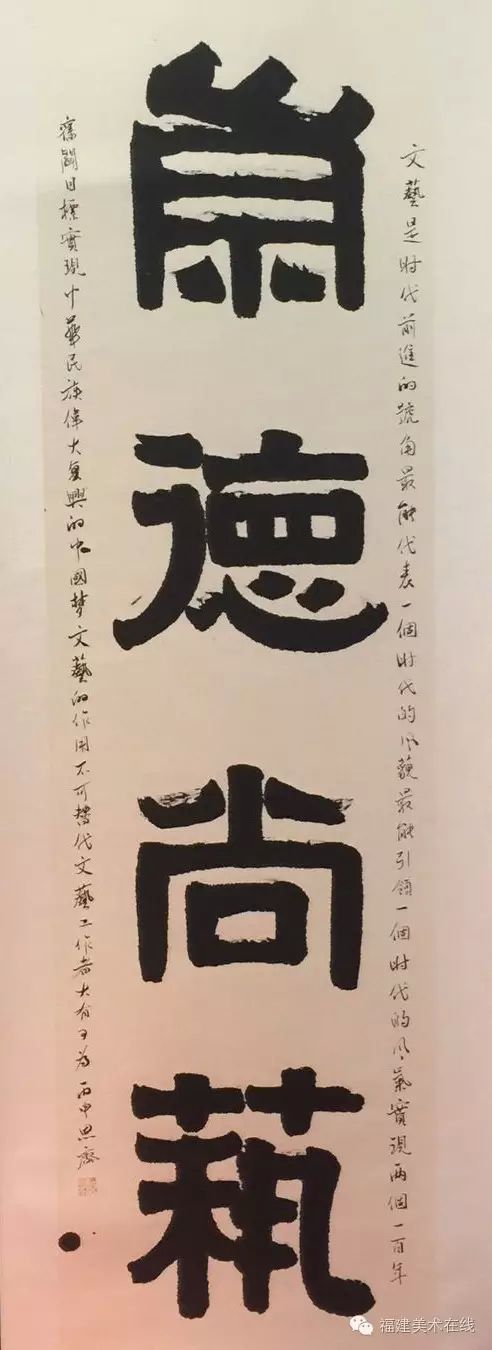 崇
德
尚
蓺
文藝是时代前進的號角最能代表一個时代的风藐最能引領一個时代的风氣實現两個一百年
奮鬭目標實現中華民族偉大复興的中國梦文藝的作用不可替代文藝工作者大有可为丙申思齋
福建美术在线